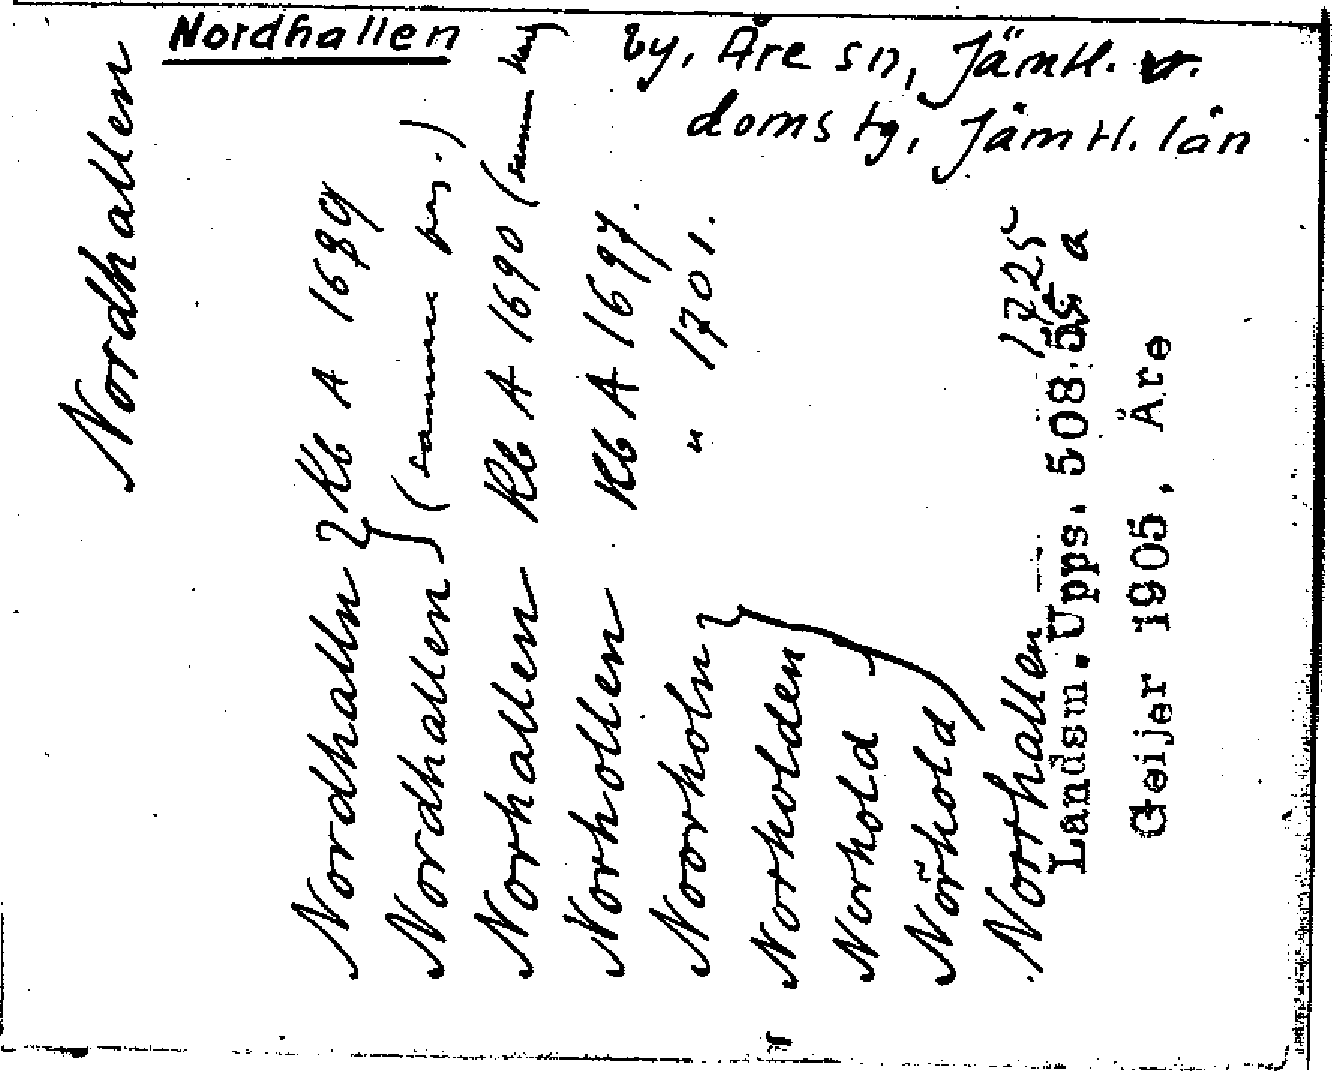 Nordhallen by, Åre sn, Jämtl. v.
domsg, Jämtl. län
Nordhallen
Nordhalln } Kb A 1689
Nordhallen } (samma pag.)
Norhallen Kb A 1690 (samma pag)
Norhollen Kb A 1697.
Noorholn } " 1701.
Norholden
Norhold
Nörhold
Norrhallen — 1725
Landsm. Upps. 508: a
Geijer 1905. Åre